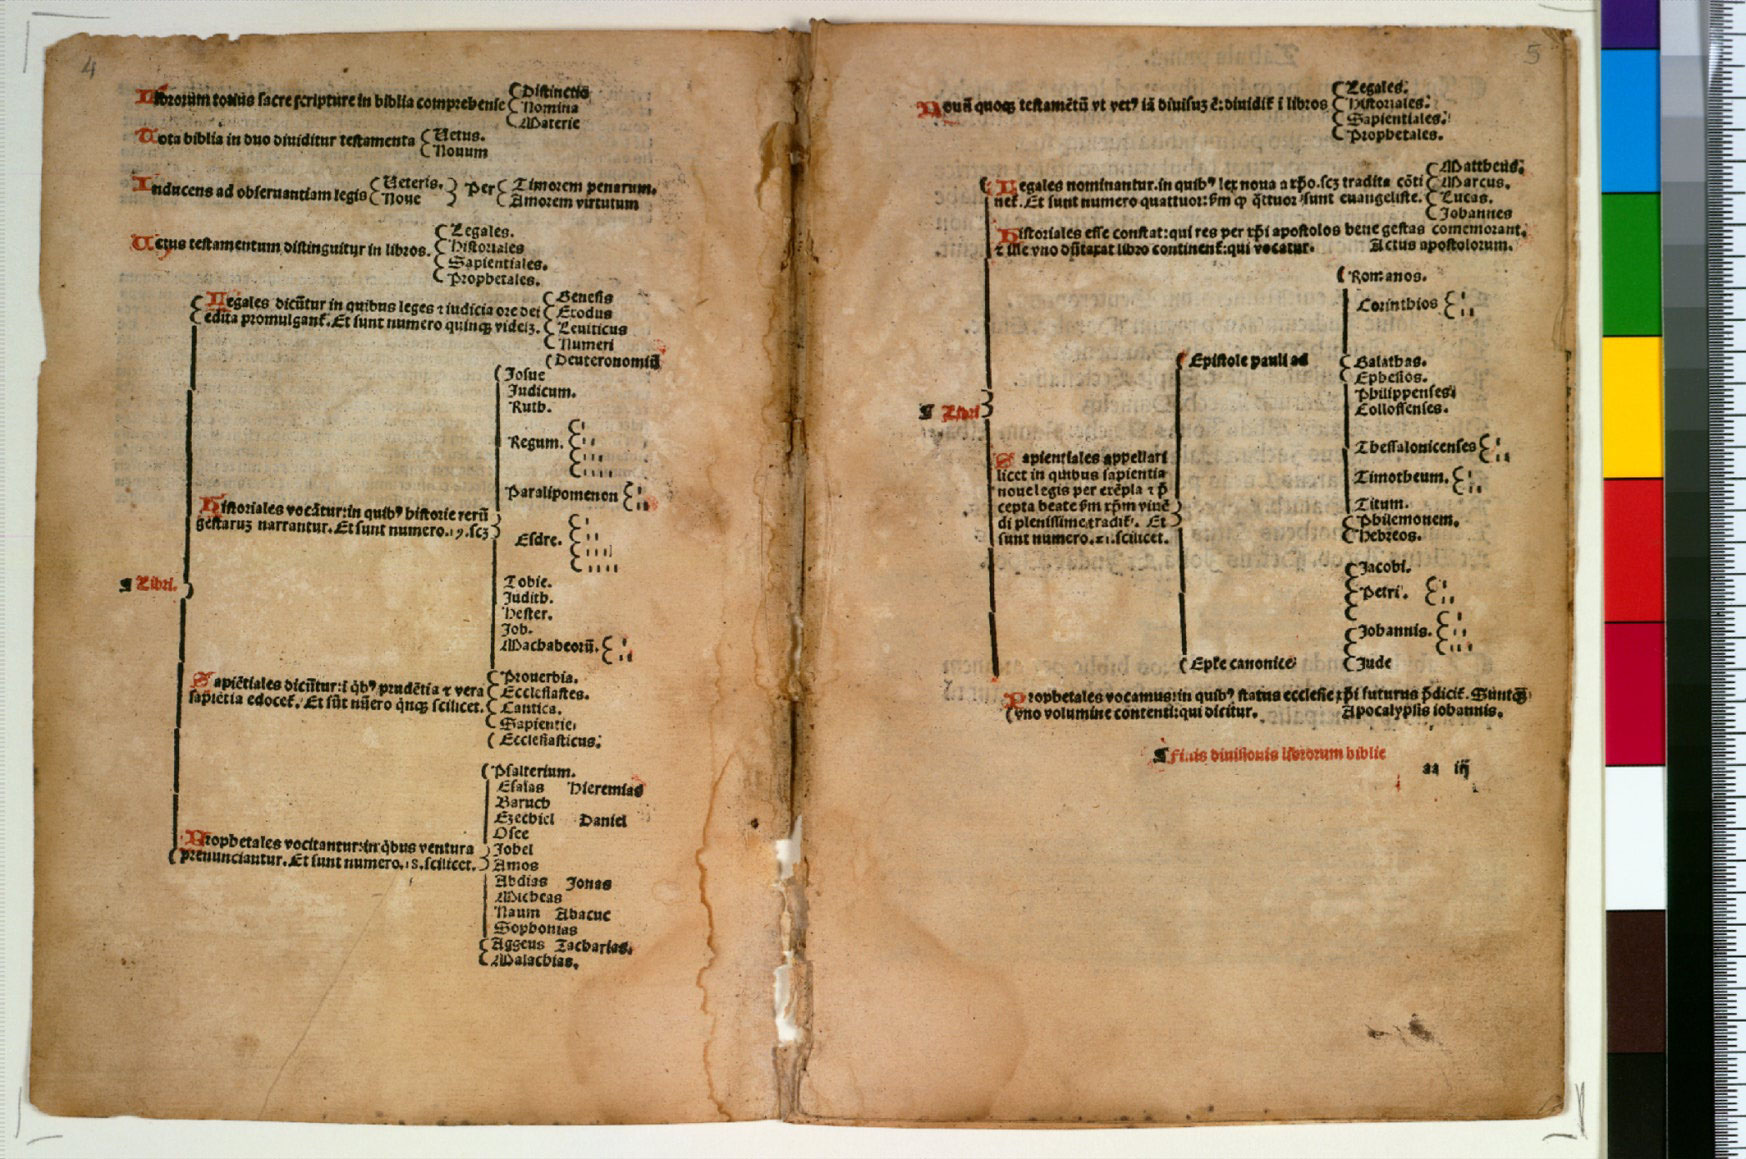 4
Librorum totius sacre scripture in biblia comprehense
Distinctio
Nomina
Materie
Tota biblia in duo diuiditur testamenta
Uetus.
Nouum
Inducens ad obseruantiam legis
Ueteris.
Noue
Per
Timorem penarum.
Amorem virtutum
Uetus testamentum distinguitur in libros.
Legales.
Historiales
Sapientiales.
Prophetales.
Legales dicūtur in quibus leges ⁊ iudicia ore dei
edita promulgant᷑. Et sunt numero quinqꝫ videlꝫ.
Genesis
Exodus
Leuiticus
Numeri
Deuteronomiū
Historiales vocātur:in quibꝰ historie rerū
gestaruꝫ narrantur. Et sunt numero.19.scꝫ
Josue
Judicum.
Ruth.
Regum.
ı
ıı
ııı
ıııı
Paralipomenon
ı
ıı
Esdre.
ı
ıı
ııı
ıııı
Tobie.
Judith.
Hester.
Job.
Machabeorū.
ı
ıı
¶ Libri.
Sapiētiales dicūtur:ī q̇bꝰ prudētia ⁊ vera
sapiētia edocet᷑. Et sūt nūero q̇nqꝫ scilicet.
Prouerbia.
Ecclesiastes.
Cantica.
Sapientie.
Ecclesiasticus.
Prophetales vocitantur:in q̇bus ventura
prenunciantur. Et sunt numero.18.scilicet.
Psalterium.
Esaias Hieremias
Baruch
Ezechiel Daniel
Osee
Johel
Amos
Abdias Jonas
Micheas
Naum Abacuc
Sophonias
Aggeus Zacharias.
Malachias.
5
Nouū quoqꝫ testamētū vt vetꝰ iā diuisuꝫ ē:diuidit᷑ ī libros
Legales.
Historiales.
Sapientiales.
Prophetales.
Legales nominantur.in quibꝰ lex noua a xp̄o.scꝫ tradita cōti
net᷑. Et sunt numero quattuor:ẜm ꝙ q̇ttuor sunt euangeliste.
Mattheus.
Marcus.
Lucas.
Johannes
Historiales esse constat:qui res per xp̄i apostolos bene gestas comemorant.
⁊ ille vno dūtaxat libro continent᷑:qui vocatur. Actus apostolorum.
¶ Libri
Sapientiales appellari
licet in quibus sapientia
noue legis per exēpla ⁊ p̄
cepta beate ẜm xp̄m viuē
di plenissime tradit᷑. Et
sunt numero.21.scilicet.
Epistole pauli ad
Romanos.
Corinthios
ı
ıı
Galathas.
Ephesios.
Philippenses
Collossenses.
Thessalonicenses
ı
ıı
Timotheum.
ı
ıı
Titum.
Philemonem.
Hebreos.
Epl̄e canonice
Jacobi.
Petri.
ı
ıı
Johannis.
ı
ıı
ııı
Jude
Prophetales vocamus:in quibꝰ status ecclesie xp̄i futurus p̄dicit᷑. Suntqꝫ
vno volumine contenti:qui dicitur. Apocalypsis iohannis.
¶ Finis diuisionis librorum biblie
aa iij